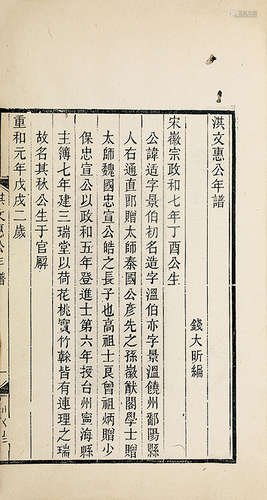 洪文惠公年譜
錢大昕編
宋徽宗政和七年丁酉公生
公諱适字景伯初名造字溫伯亦字景溫饒州鄱陽縣
人右通直郎贈太師秦國公彥先之孫徽猷閣學士贈
太師魏國忠宣公皓之長子也高祖士良曾祖炳贈少
保忠宣公以政和五年登進士第六年授台州寧海縣
主簿七年建三瑞堂以荷花桃實竹榦皆有連理之瑞
故名其秋公生于官廨
重和元年戊戌二歲
洪文惠公年譜